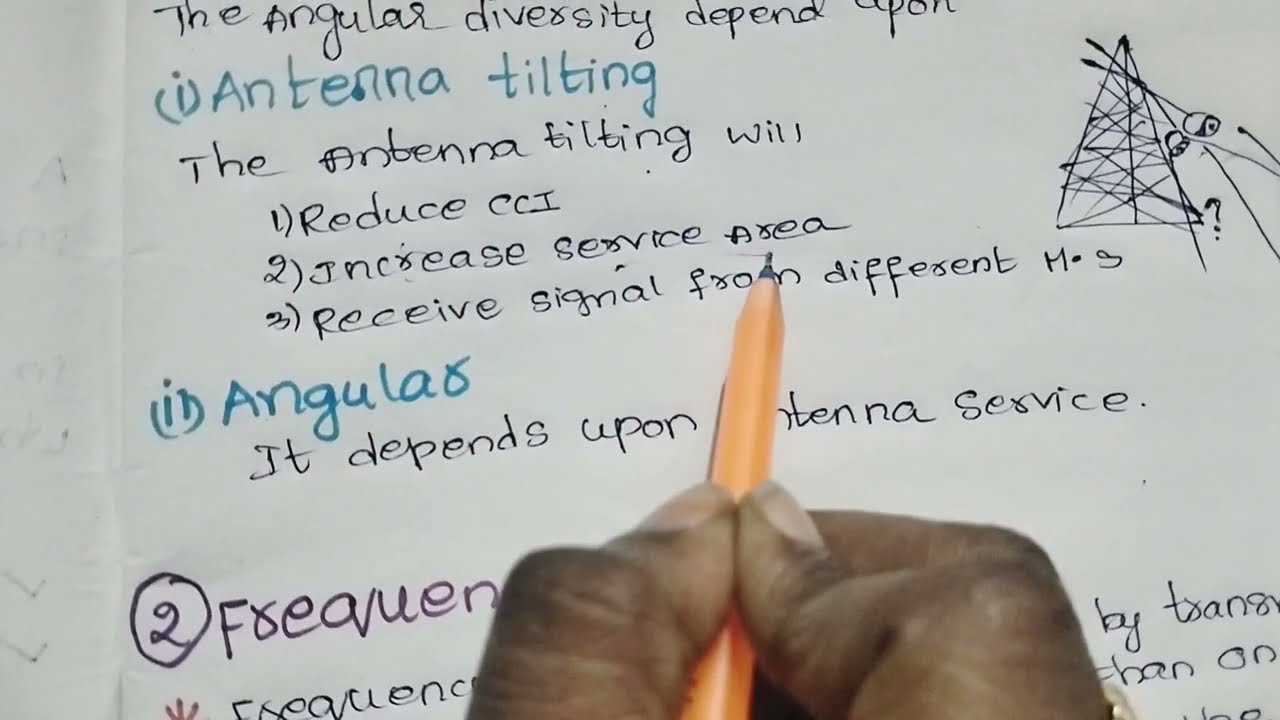 The Angular diversity depend upon
(i) Antenna tilting
The Antenna tilting will
1) Reduce CCI
2) Increase service Area
3) Receive signal from different M.S
?
(ii) Angular
It depends upon service.
2 Frequen
by trans
* Frequenc than on